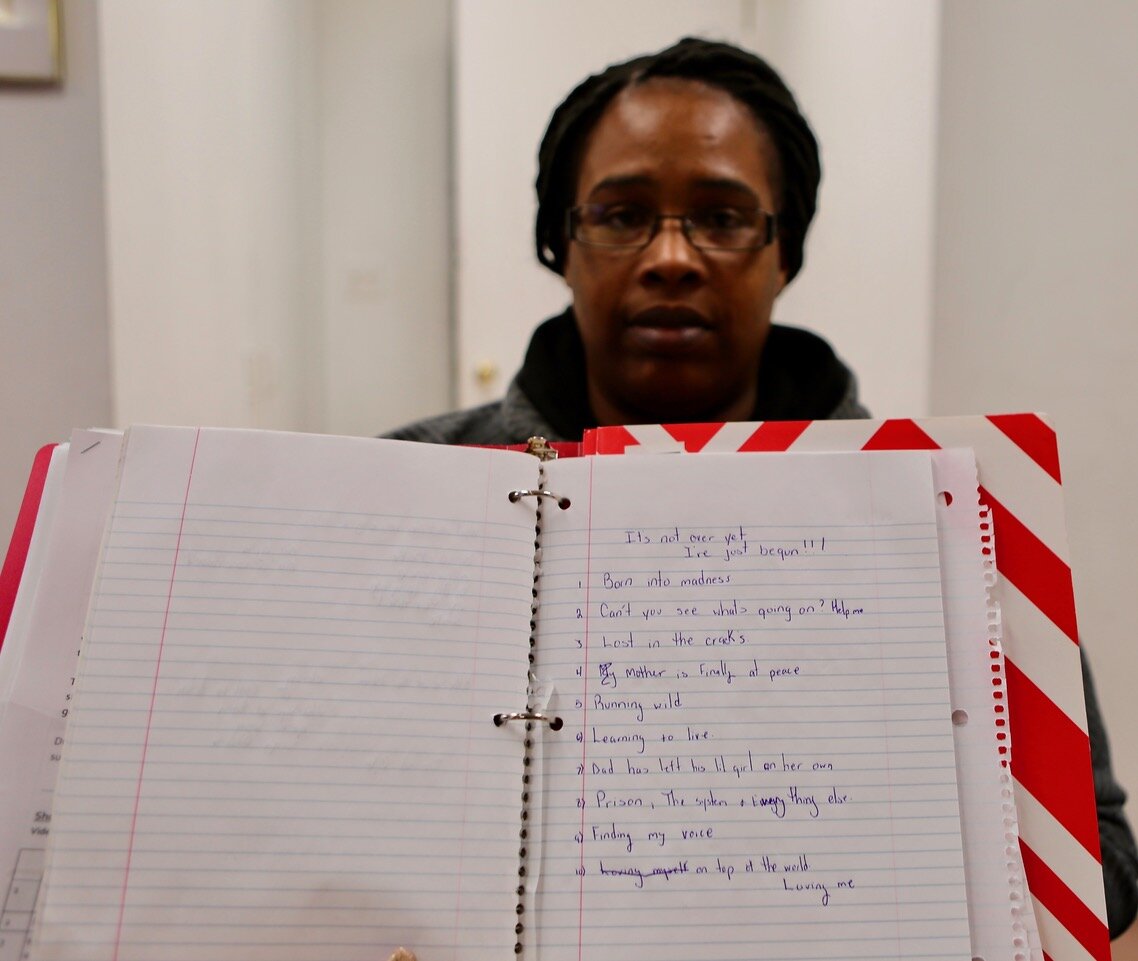 It's not over yet
I've just begun!!!
1 Born into madness
2 Can't you see whats going on? Help me
3 Lost in the cracks
4 My mother is finally at peace
5 Running wild
6) Learning to live.
7) Dad has left his lil girl on her own
8) Prison, The system + Everything else.
9) Finding my voice
10) Loving myself on top of the world.
Loving me